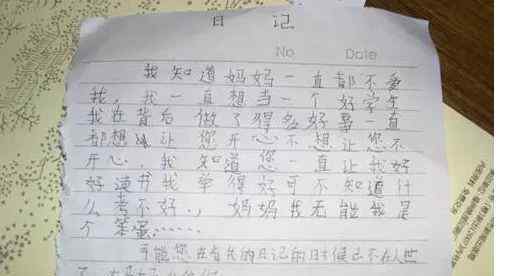 日 记
No Date
我知道妈妈一直都不爱
我，我一直想当一个好学生
我在背后做了很多好事一直
都想让您开心不想让您不
开心，我知道您一直让我好
好读书我争得好可不知道什
么考不好.，妈妈我无能我是
个笨蛋……
可能您在看我的日记的时候已不在人世